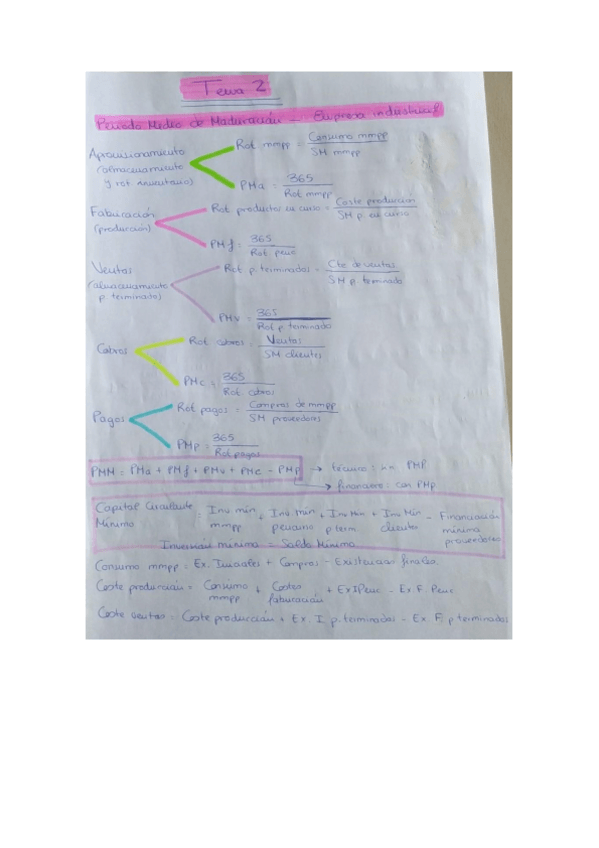 Tema 2
Periodo Medio de Maduración - Empresa industrial
Aprovisionamiento
(almacenamiento
y rot inventario)
Rot mmpp = Consumo mmpp
SM mmpp
PMa = 365
Rot mmpp
Fabricación
(producción)
Rot productos en curso = Coste produccion
SM p. en curso
PMf = 365
Rot penc
Ventas
(almacenamiento
p terminado)
Rot p. terminados = Cte de ventas
SM p. terminado
PMv = 365
Rot p terminado
Cobros
Rot cobros = Ventas
SM clientes
PMc = 365
Rot cobros
Pagos
Rot pagos = Compras de mmpp
SM proveedores
PMp = 365
Rot pagos
PMM = PMa + PMf + PMv + PMc - PMp → técnico: sin PMP
→ financiero: con PMp
Capital Circulante = Inv min + Inv min + Inv Min + Inv Min - Financiación
Mínimo mmpp p term clientes mínima
proveedores
Inversión mínima = Saldo Mínimo
Consumo mmpp = Ex. Iniciales + Compras - Existencias finales.
Coste producción = Consumo + Costes + Ex I Penc - Ex. F. Penc
mmpp fabricación
Coste ventas = Coste producción + Ex. I. p. terminados - Ex. F. p terminados